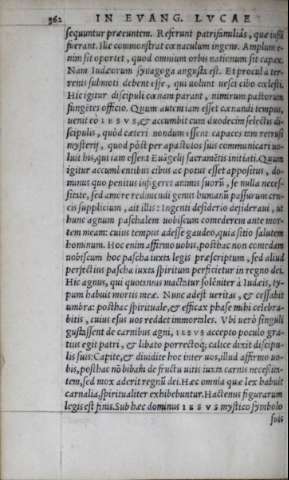 362 IN EVANG. LVCAE
sequuntur præeuntem. Referunt patrifamiliâs, quæ iussi
fuerant. Ille commonstrat cœnaculum ingens. Amplum e-
nim sit oportet, quod omnium orbis nationum sit capax.
Nam Iudæorum synagoga angusta est. Et procul à ter-
renis submoti debent esse, qui uolunt uesci cibo cœlesti.
Hic igitur discipuli cœnam parant, nimirum pastorum
fungētes officio. Quum autem iam esset cœnandi tempus,
uenit eò IESVS, & accumbit cum duodecim selectis di-
scipulis, quòd cæteri nondum essent capaces tam retrusi
mysterij, quod pòst per apostolos suis communicari uo-
luit his, qui iam essent Euāgelij sacramētis initiati. Quum
igitur accumbentibus cibus ac potus esset appositus, do-
minus quo penitus infigeret animis suorū, se nulla neces-
sitate, sed amore redimendi genus humanū passurum cru-
cis supplicium, ait illis: Ingenti desiderio desideraui, ut
hunc agnum paschalem uobiscum comederem ante mor-
tem meam: cuius tempus adesse gaudeo, quia sitio salutem
hominum. Hoc enim affirmo uobis, posthac non comedam
uobiscum hoc pascha iuxta legis præscriptum, sed aliud
perfectius pascha iuxta spiritum perficietur in regno dei.
Hic agnus, qui quotannis mactatur solēniter à Iudæis, ty-
pum habuit mortis meæ. Nunc adest ueritas, & cessabit
umbra: posthac spirituale, & efficax phase mihi celebra-
bitis, cuius esus uos reddet immortales. Vbi uerò singuli
gustassent de carnibus agni, IESVS accepto poculo gra-
tias egit patri, & libato porrectoq; calice dixit discipu-
lis suis: Capite, & diuidite hoc inter uos, illud affirmo uo-
bis, posthac nō bibam de fructu uitis iuxta carnis necessita-
tem, sed mox aderit regnū dei. Hæc omnia quæ lex habuit
carnalia, spiritualiter exhibebuntur. Hactenus figurarum
legis est finis. Sub hæc dominus IESVS mystico symbolo
suis